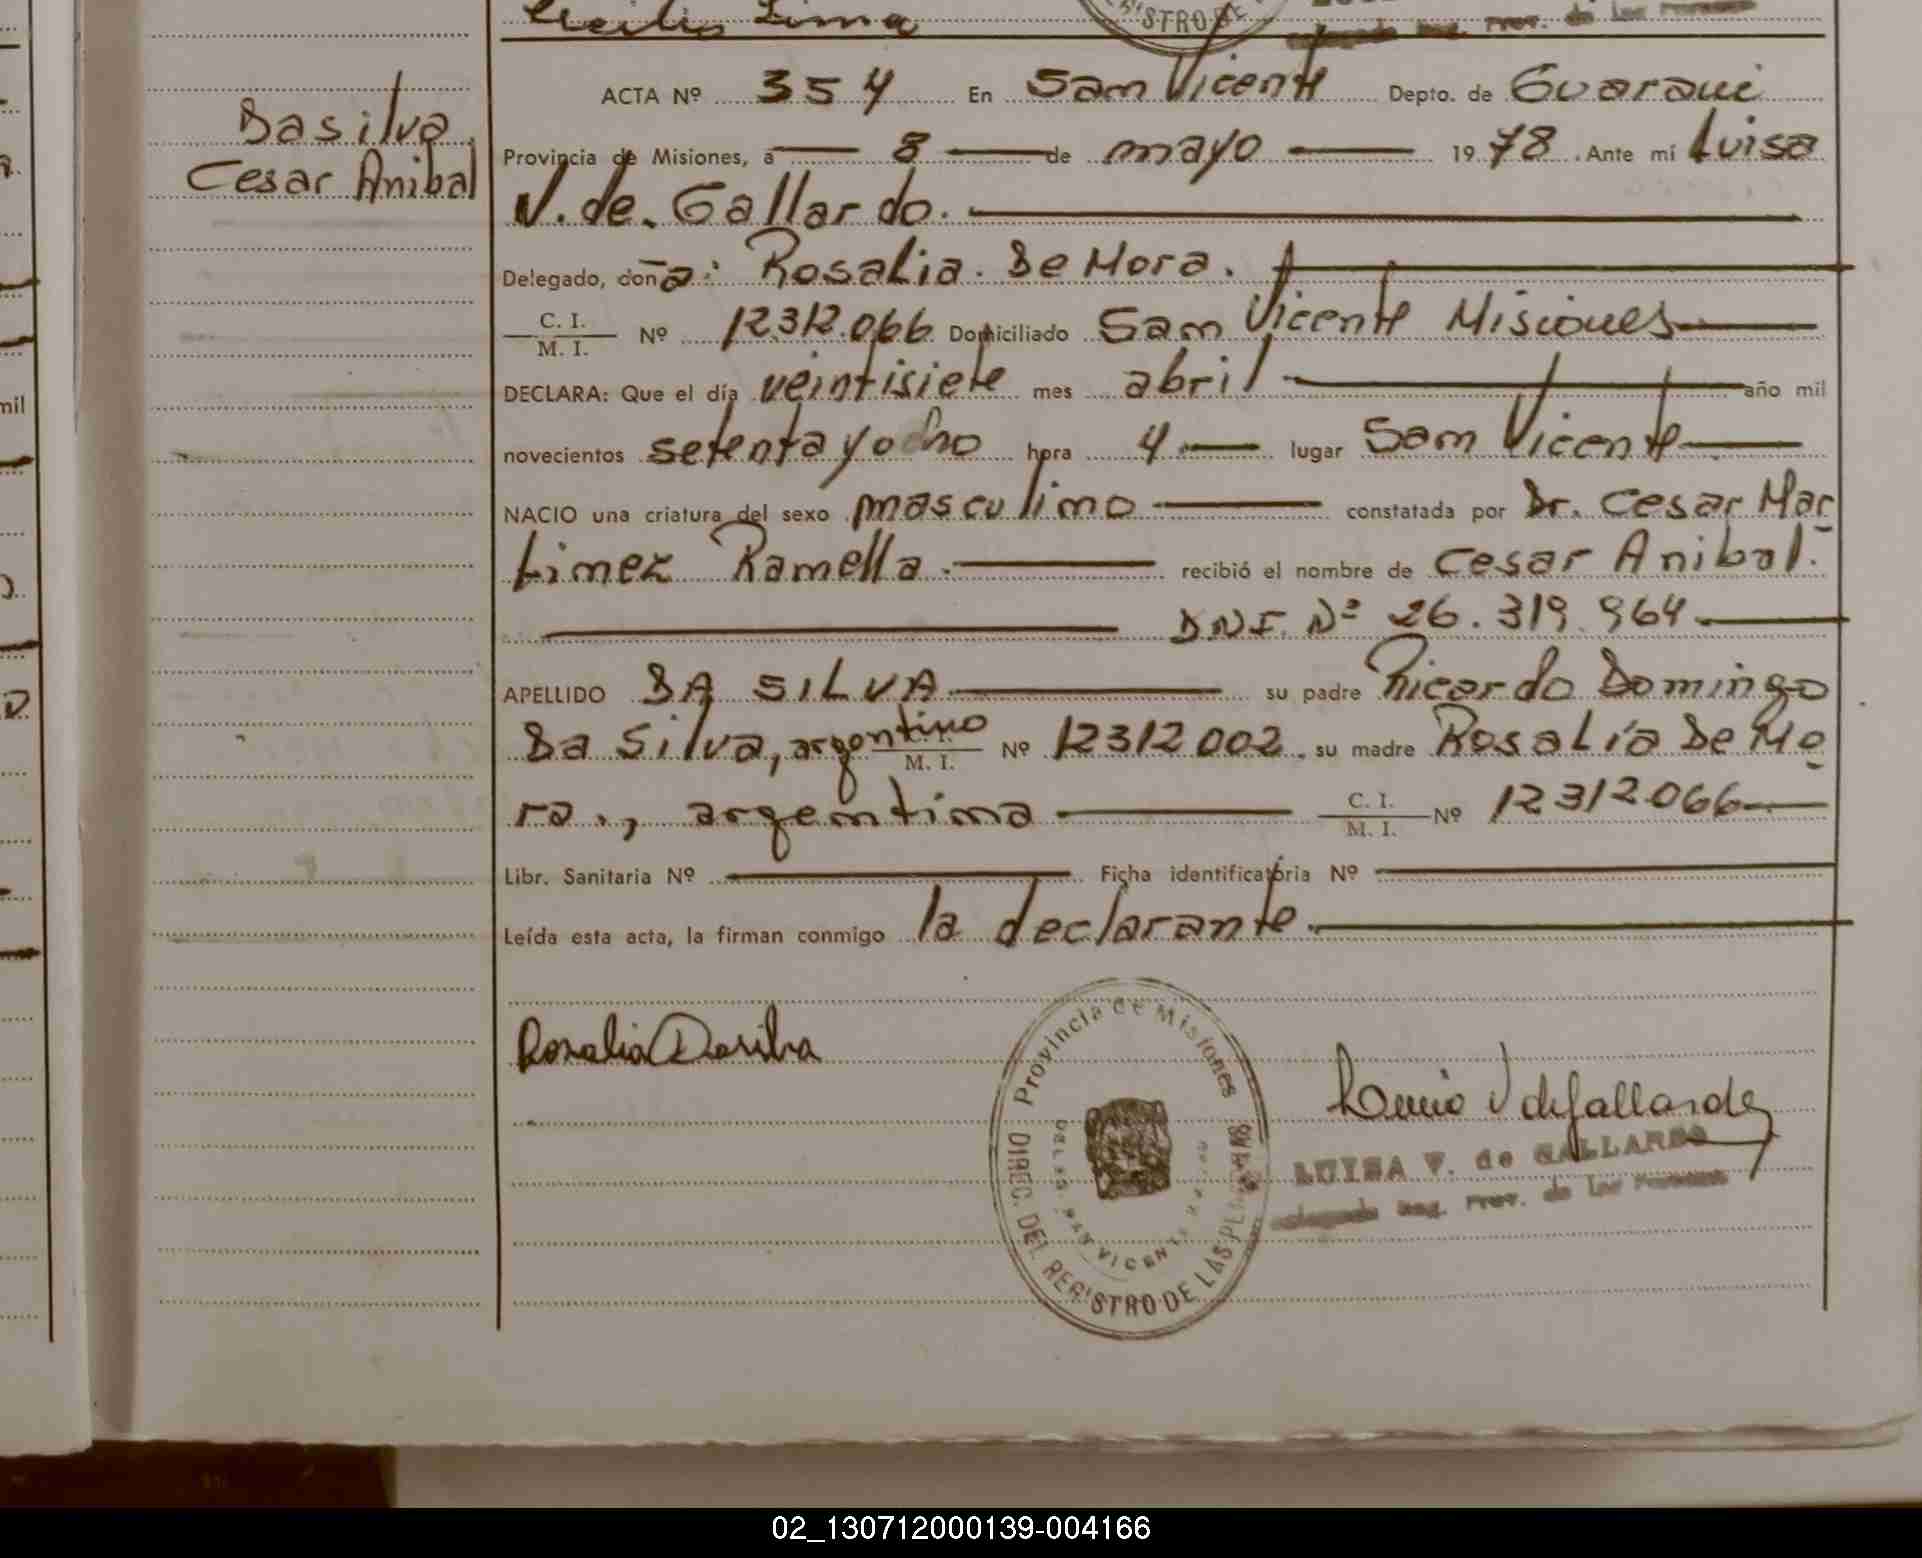 Cecilia Lima
Basilva
Cesar Anibal
ACTA Nº 354 En San Vicente Depto. de Guarani
Provincia de Misiones, a 8 de mayo 1978. Ante mí Luisa
V. de. Gallardo.
Delegado, doña: Rosalia. De Mora.
C. I.
M. I. Nº 12.312.066 Domiciliado San Vicente Misiones
DECLARA: Que el día veintisiete mes abril año mil
novecientos setenta y ocho hora 4 lugar San Vicente
NACIO una criatura del sexo masculino constatada por Dr. Cesar Mar
tinez Ramella. recibió el nombre de Cesar Anibal.
D.N.I. Nº 26.319.964
APELLIDO DA SILVA su padre Ricardo Domingo
Da Silva, argentino M. I. Nº 12312002, su madre Rosalía De Mo
ra., argentina C. I. M. I. Nº 12312066
Libr. Sanitaria Nº Ficha identificatoria Nº
Leída esta acta, la firman conmigo la declarante.
Rosalia Dasilva
Provincia de Misiones
DIREC. DEL REGISTRO DE LAS PERSONAS
SAN VICENTE
Luisa V de Gallardo
LUISA V. de GALLARDO
Delegada Reg. Prov. de las Personas
02_130712000139-004166